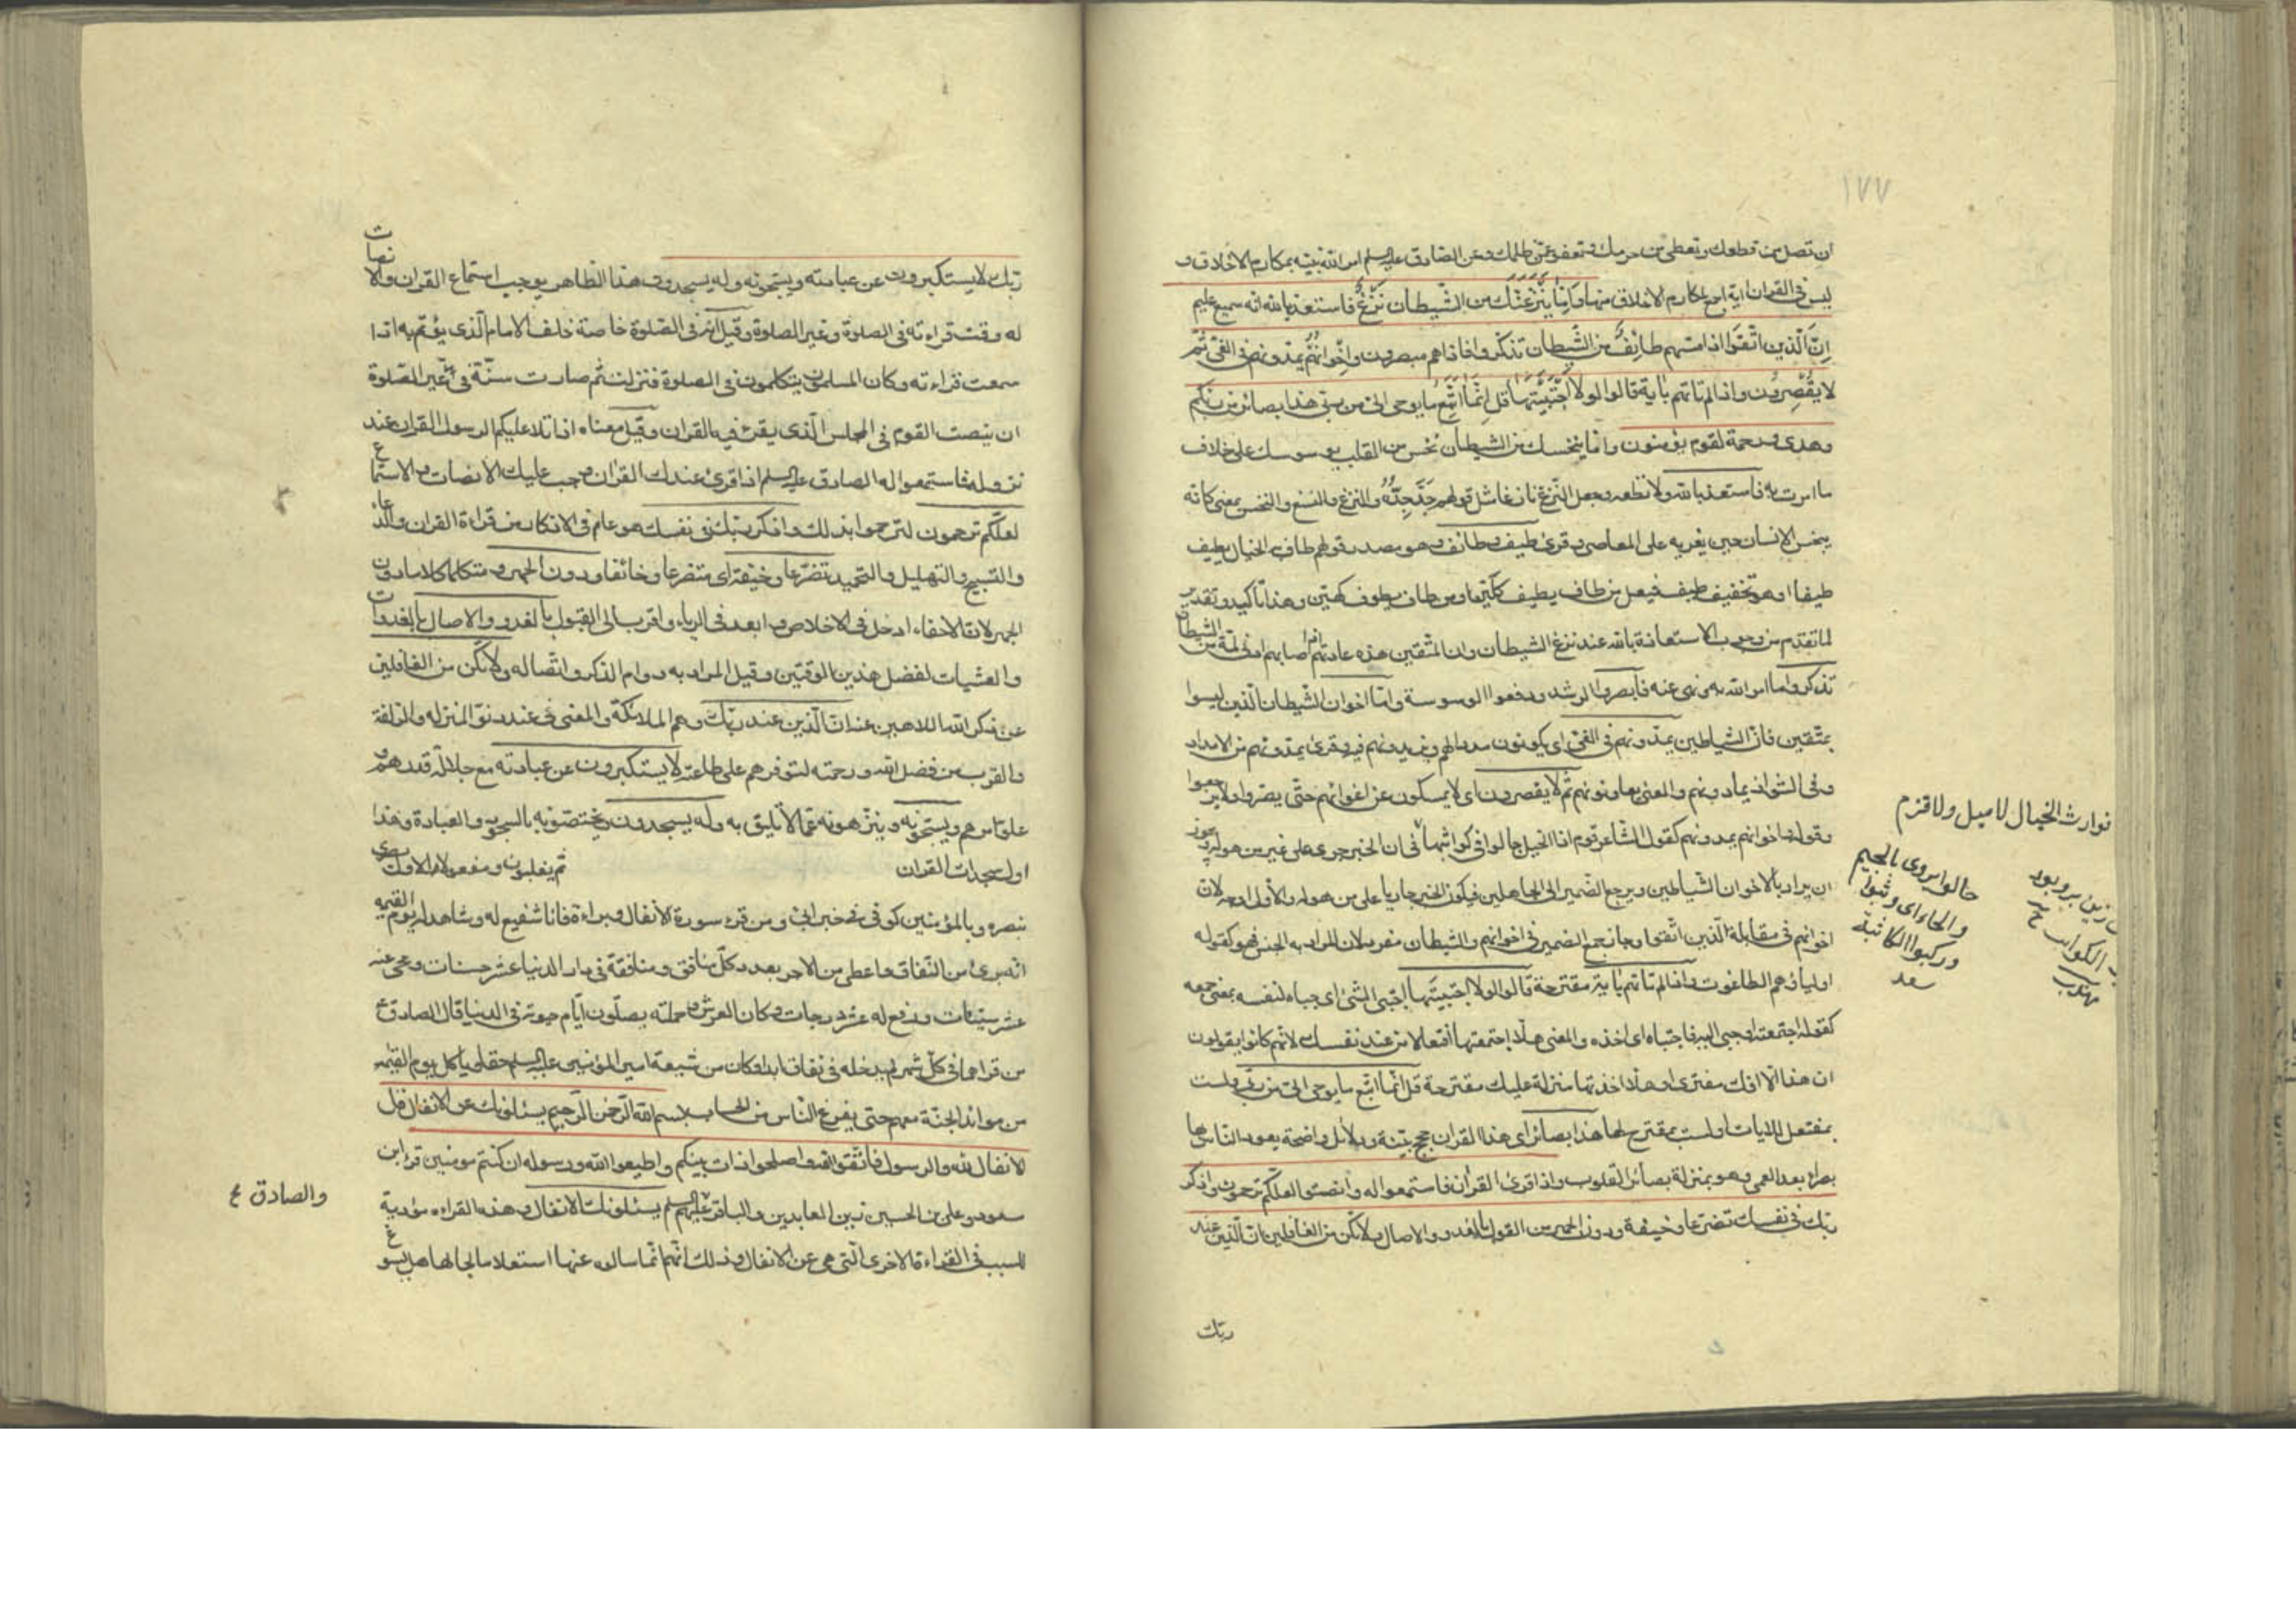 ١٧٧
ان تصل من قطعك وتعطى من حرمك وتعفو عمّن ظلمك وعن الصادق عليه السلم امر الله نبيّه بمكارم الاخلاق و
ليس فى القران اية اجمع لمكارم الاخلاق منها وَاِمّا يَنْزَغَنَّكَ من الشّيطان نَزْغٌ فاستعذ بالله انه سميع عليم
اِنّ الّذين اتّقَوا اذا مسّهم طائِفٌ من الشّيطان تذكّروا فاذا هم مبصرون واِخْوانُهُم يمدّونهم فى الغىّ ثمّ
لا يُقْصِرُون واذا لم تاتهم باٰية قالوا لولا اجْتَبَيْتَها قل اِنَّما اَتَّبِعُ ما يوحى الىّ من ربّى هذا بصائر من ربّكم
وهدى ورحمة لقوم يؤمنون وامّا ينخسنّك من الشيطان نخس من القلب يوسوسك على خلاف
ما امرت به فاستعذ بالله ولا تطعه وجعل النّزغ نازغا مثل قولهم جَدَّ جِدُّهُ والنزغ والنسغ والنخس بمعنى كانه
ينخس الانسان حين يغريه على المعاصى وقرئ طيف وطائف وهو مصدر قولهم طاف الخيال يطيف
طيفا او هو تخفيف طيّف فيعل من طاف يطيف كليّن او من طاف يطوف كهيّن وهذا تاكيد وتقدير
لما تقدّم من وجوب الاستعانة بالله عند نزغ الشيطان وان المتّقين هذه عادتهم اذا اصابهم ادنى لمّة من الشيطان
تذكروا ما امر الله به ونهى عنه فابصروا الرشد ودفعوا الوسوسة وامّا اخوان الشّيطان الّذين ليسوا
بمتّقين فانّ الشياطين يمدّونهم فى الغىّ اى يكونون مددا لهم ويزيدونهم فيه وقرئ يمدّونهم من الامداد
وفى الشواذ يمادّونهم والمعنى يعاونونهم ثم لا يقصرون اى لا يمسكون عن اغوائهم حتّى يصرّوا ولا يرجعوا
وقوله واخوانهم يمدونهم كقول الشاعر قوم اذا الخيل جالوا فى كواثبها فى ان الخبر جرى على غير من هو له ويجوز
ان يراد بالاخوان الشّياطين ويرجع الضمير الى الجاهلين فيكون الخبر جاريا على من هو له والاوّل اوجه لانّ
اخوانهم فى مقابلة الّذين اتّقوا وجاز جمع الضمير فى اخوانهم والشيطان مفرد لان المراد به الجنس فهو كقوله
اولياؤهم الطاغوت واذا لم تاتهم باٰية مقترحة قالوا لولا اجتبيتها اجتبى الشئ اى جباه لنفسه بمعنى جمعه
كقوله اجتمعته او جبى اليه فاجتباه اى اخذه والمعنى هلّا اجتمعتها افتعالا من عند نفسك لانهم كانوا يقولون
ان هذا الّا افك مفترى او هلا اخذتها منزلة عليك مقترحة قل انّما اتّبع ما يوحى الىّ من ربّى ولست
بمفتعل للايات او لست بمقترح لها هذا بصائر اى هذا القران حجج بيّنة ودلائل واضحة يعود الناس بها
بصراء بعد العمى وهو بمنزلة بصائر القلوب واذا قرئ القران فاستمعوا له وانصتوا لعلّكم ترحمون واذكر
ربّك فى نفسك تضرّعا وخيفة ودون الجهر من القول بالغدوّ والاصال ولا تكن من الغافلين انّ الّذين عند
ربّك
نوارث الخيال لا ميل ولا قزم
جالوا يروى بالجيم
والحاء اى وثبوا
وركبوا الكاثبة
سعد
ربّك لا يستكبرون عن عبادته ويسبّحونه وله يسجدون هذا الظاهر يوجب استماع القران والانصات
له وقت قراءته فى الصلوة وغير الصلوة وقيل انّه فى الصّلوة خاصة خلف الامام الّذى يؤتمّ به اذا
سمعت قراءته وكان المسلمون يتكلّمون فى الصلوة فنزلت ثم صارت سنّة فى غير الصّلوة
ان ينصت القوم فى المجلس الّذى يقرء فيه القران وقيل معناه اذا تلا عليكم الرسول القران عند
نزوله فاستمعوا له الصادق عليه السلم اذا قرئ عندك القران وجب عليك الانصات والاستماع
لعلّكم ترحمون لترحموا بذلك واذكر ربّك فى نفسك هو عام فى الاذكار من قراءة القران والدعاء
والتسبيح والتهليل والتحميد تضرّعا وخيفة اى متضرعا وخائفا ودون الجهر ومتكلما كلاما دون
الجهر لانّ الاخفاء ادخل فى الاخلاص وابعد فى الرياء واقرب الى القبول بالغدو والاصال بالغدوات
والعشيات لفضل هذين الوقتين وقيل المراد به دوام الذكر واتّصاله ولا تكن من الغافلين
عن ذكر الله اللاهين عنه انّ الّذين عند ربّك وهم الملائكة والمعنى فى عند دنوّ المنزله والزلفة
والقرب من فضل الله ورحمته لتوفرهم على طاعته لا يستكبرون عن عبادته مع جلالة قدرهم و
علوّ امرهم ويسبّحونه وينزّهونه عمّا لا يليق به وله يسجدون ويختصّونه بالسجود والعبادة وهذا
اول سجدات القران
ثم يغلبون ومفعولا الاول بصرى
بنصره وبالمؤمنين كوفى فى خبر ابىّ ومن قرء سورة الانفال وبراءة فانا شفيع له وشاهد له يوم القيمة
انّه برئ من النّفاق واعطى من الاجر بعدد كلّ منافق ومنافقة فى دار الدنيا عشر حسنات ومحى عنه
عشر سيّئات ورفع له عشر درجات وكان العرش وحملته يصلّون ايّام حيوته فى الدنيا قال الصادق ع
من قراهما فى كلّ شهر لم يدخله فى نفاق ابدا وكان من شيعة امير المؤمنين عليه السلم حقّا وياكل يوم القيمة
من موائد الجنّة معهم حتى يفرغ النّاس من الحساب بسم الله الرّحمن الرّحيم يسئلونك عن الانفال قل
الانفال لله والرسول فاتّقوا الله واصلحوا ذات بينكم واطيعوا الله ورسوله ان كنتم مومنين قرا ابن
مسعود وعلى بن الحسين زين العابدين والباقر عليهم السلم يسئلونك الانفال وهذه القراءه مؤدية
للسبب فى القراءة الاخرى الّتى هى عن الانفال وذلك انّهم انّما سالوه عنها استعلاما لحالها هل يسوغ
والصادق ع